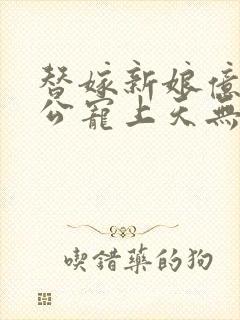 替嫁新娘億
公寵上天無
喫錯藥的狗